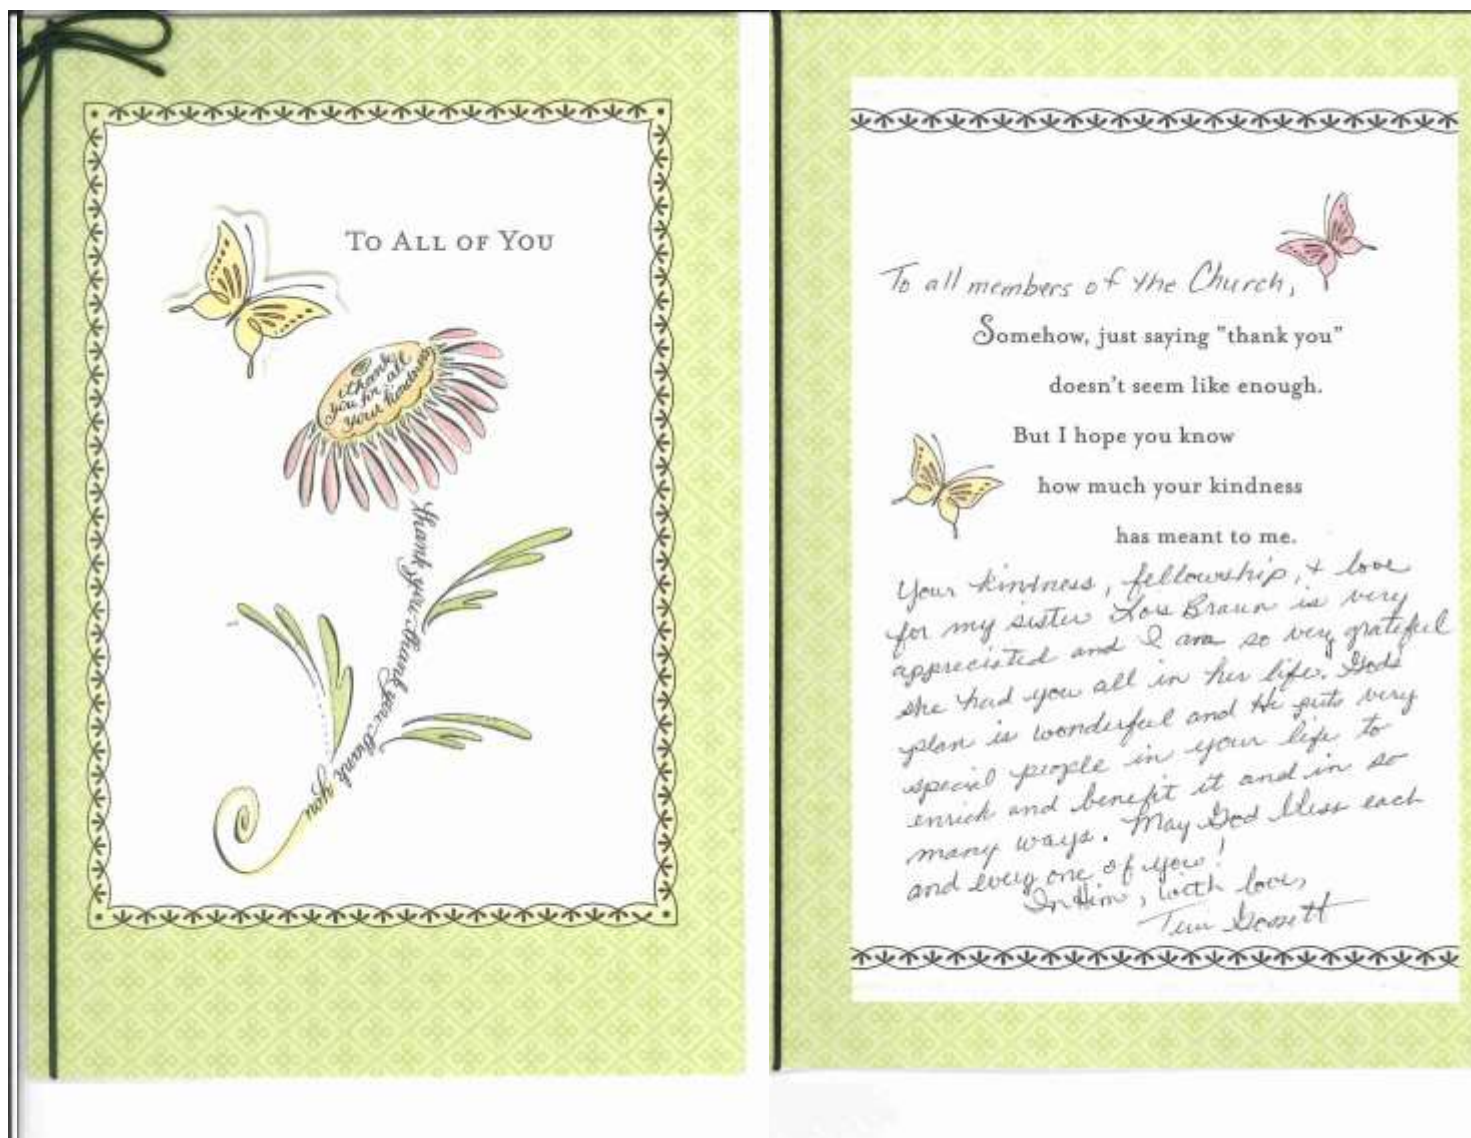 TO ALL OF YOU
thank
you for all
your kindness
thank you thank you thank
you
To all members of the Church,
Somehow, just saying "thank you"
doesn't seem like enough.
But I hope you know
how much your kindness
has meant to me.
Your kindness, fellowship, & love
for my sister Lois Braun is very
appreciated and I am so very grateful
she had you all in her life. God's
plan is wonderful and He puts very
special people in your life to
enrich and benefit it and in so
many ways. May God bless each
and every one of you!
In Him, with love,